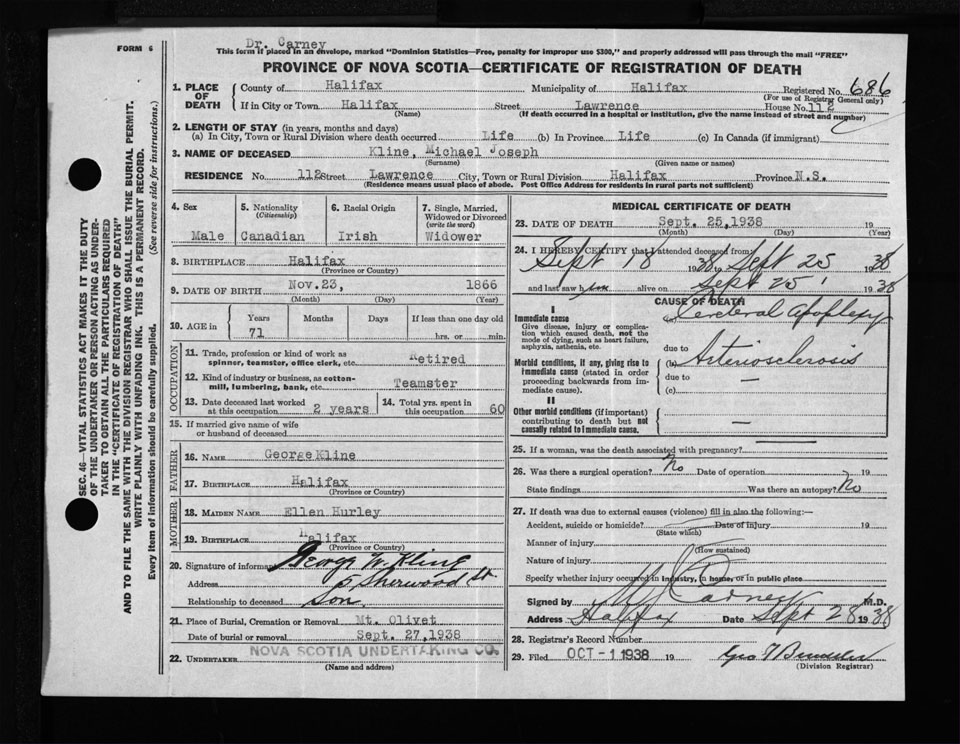 Dr. Carney
FORM 6
This form if placed in an envelope, marked "Dominion Statistics—Free, penalty for improper use $300," and properly addressed will pass through the mail "FREE"
PROVINCE OF NOVA SCOTIA—CERTIFICATE OF REGISTRATION OF DEATH
1. PLACE OF DEATH
County of Halifax Municipality of Halifax Registered No. 686
(For use of Registrar General only)
If in City or Town Halifax Street Lawrence House No. 112
(Name) (If death occurred in a hospital or institution, give the name instead of street and number)
2. LENGTH OF STAY (in years, months and days)
(a) In City, Town or Rural Division where death occurred Life (b) In Province Life (c) In Canada (if immigrant)
3. NAME OF DECEASED Kline, Michael Joseph
(Surname) (Given name or names)
RESIDENCE No. 112 Street Lawrence City, Town or Rural Division Halifax Province N.S.
(Residence means usual place of abode. Post Office Address for residents in rural parts not sufficient)
4. Sex
Male
5. Nationality (Citizenship)
Canadian
6. Racial Origin
Irish
7. Single, Married, Widowed or Divorced (write the word)
Widower
8. BIRTHPLACE Halifax
(Province or Country)
9. DATE OF BIRTH Nov. 23, 1866
(Month) (Day) (Year)
10. AGE in
Years Months Days If less than one day old
71 hrs. or min.
OCCUPATION
11. Trade, profession or kind of work as spinner, teamster, office clerk, etc. Retired
12. Kind of industry or business, as cotton-mill, lumbering, bank, etc. Teamster
13. Date deceased last worked at this occupation 2 years
14. Total yrs. spent in this occupation 60
15. If married give name of wife or husband of deceased
FATHER
16. NAME George Kline
17. BIRTHPLACE Halifax
(Province or Country)
MOTHER
18. MAIDEN NAME Ellen Hurley
19. BIRTHPLACE Halifax
(Province or Country)
20. Signature of informant George W. Kline
Address 5 Sherwood St.
Relationship to deceased Son
21. Place of Burial, Cremation or Removal Mt. Olivet
Date of burial or removal Sept. 27, 1938
22. UNDERTAKER NOVA SCOTIA UNDERTAKING CO.
(Name and address)
MEDICAL CERTIFICATE OF DEATH
23. DATE OF DEATH Sept. 25, 1938 19
(Month) (Day) (Year)
24. I HEREBY CERTIFY that I attended deceased from
Sept 18 1938 to Sept 25 1938
and last saw him alive on Sept 25 1938
CAUSE OF DEATH
I
Immediate cause
Give disease, injury or complication which caused death, not the mode of dying, such as heart failure, asphyxia, asthenia, etc.
Cerebral Apoplexy
due to
Morbid conditions, if any, giving rise to immediate cause (stated in order proceeding backwards from immediate cause).
(b) Arteriosclerosis
due to —
(c)
II
Other morbid conditions (if important) contributing to death but not causally related to immediate cause. —
25. If a woman, was the death associated with pregnancy?
26. Was there a surgical operation? No Date of operation 19
State findings Was there an autopsy? No
27. If death was due to external causes (violence) fill in also the following:—
Accident, suicide or homicide? Date of injury 19
(State which)
Manner of injury
(How sustained)
Nature of injury
Specify whether injury occurred in industry, in home, or in public place
Signed by Carney M.D.
Address Halifax Date Sept 28 1938
28. Registrar's Record Number
29. Filed OCT - 1 1938 19
(Division Registrar)
SEC. 46—VITAL STATISTICS ACT MAKES IT THE DUTY
OF THE UNDERTAKER OR PERSON ACTING AS UNDER-
TAKER TO OBTAIN ALL THE PARTICULARS REQUIRED
IN THE "CERTIFICATE OF REGISTRATION OF DEATH"
AND TO FILE THE SAME WITH THE DIVISION REGISTRAR WHO SHALL ISSUE THE BURIAL PERMIT.
WRITE PLAINLY WITH UNFADING INK. THIS IS A PERMANENT RECORD.
Every item of information should be carefully supplied. (See reverse side for instructions.)